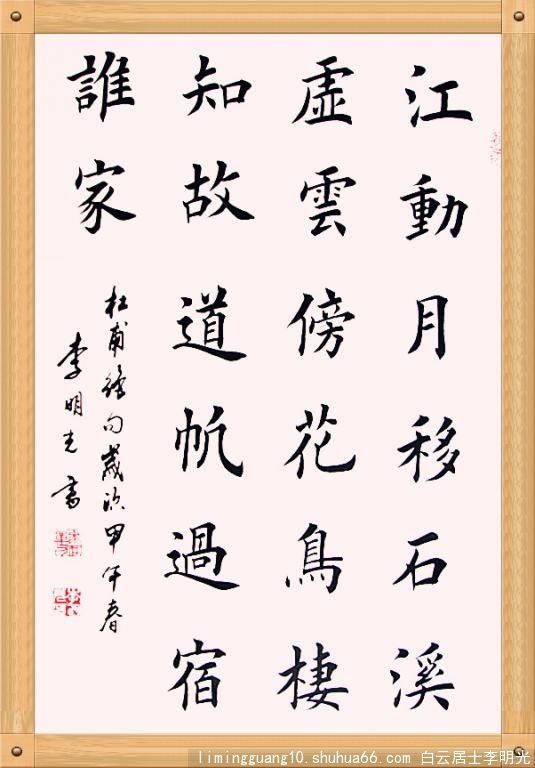 江動月移石溪
虛雲傍花鳥棲
知故道帆過宿
誰家
杜甫絕句歲次甲午春
李明光書
limingguang10.shuhua66.com 白云居士李明光